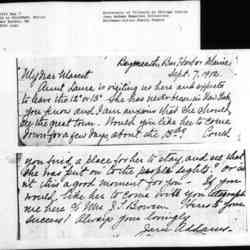 University of Illinois at Chicago Circle
Jane Addams Memorial Collection
Baymeath, Bar Harbor Maine
Sept. 7, 1912.
My Dear Marcet
Aunt Laura is visiting us here and expects
to leave the 12th or 13th. She has never been in New York
you know and I am anxious that she should
see the great town. Would you like her to come
down for a few days about the 13th? Could
you find a place for her to stay, and see that
she was put on to the people sights? or is
n't this a good moment for you? If you
would like her to come will you telegraph
me here c/o Mrs J. T. Bowen. Yours to your
success! Always your lovingly
Jane Addams.